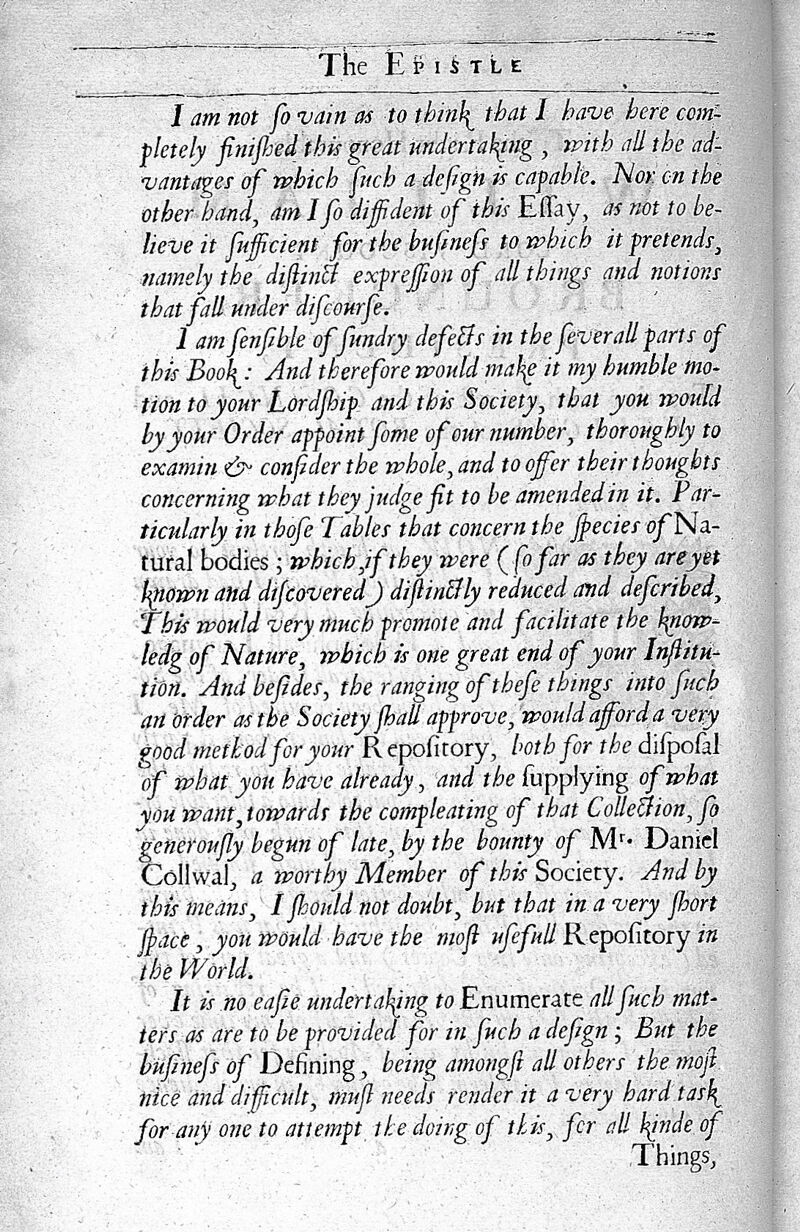 The EPISTLE
I am not ſo vain as to think that I have here com-
pletely finiſhed this great undertaking, with all the ad-
vantages of which ſuch a deſign is capable. Nor on the
other hand, am I ſo diffident of this Eſſay, as not to be-
lieve it ſufficient for the buſineſs to which it pretends,
namely the diſtinct expreſſion of all things and notions
that fall under diſcourſe.
I am ſenſible of ſundry defects in the ſeverall parts of
this Book: And therefore would make it my humble mo-
tion to your Lordſhip and this Society, that you would
by your Order appoint ſome of our number, thoroughly to
examin & conſider the whole, and to offer their thoughts
concerning what they judge fit to be amended in it. Par-
ticularly in thoſe Tables that concern the ſpecies of Na-
tural bodies; which, if they were (ſo far as they are yet
known and diſcovered) diſtinctly reduced and deſcribed,
This would very much promote and facilitate the know-
ledg of Nature, which is one great end of your Inſtitu-
tion. And beſides, the ranging of theſe things into ſuch
an order as the Society ſhall approve, would afford a very
good method for your Repoſitory, both for the diſpoſal
of what you have already, and the ſupplying of what
you want, towards the compleating of that Collection, ſo
generouſly begun of late, by the bounty of Mr. Daniel
Collwal, a worthy Member of this Society. And by
this means, I ſhould not doubt, but that in a very ſhort
ſpace, you would have the moſt uſefull Repoſitory in
the World.
It is no eaſie undertaking to Enumerate all ſuch mat-
ters as are to be provided for in ſuch a deſign; But the
buſineſs of Defining, being amongſt all others the moſt
nice and difficult, muſt needs render it a very hard task
for any one to attempt the doing of this, for all kinde of
Things,